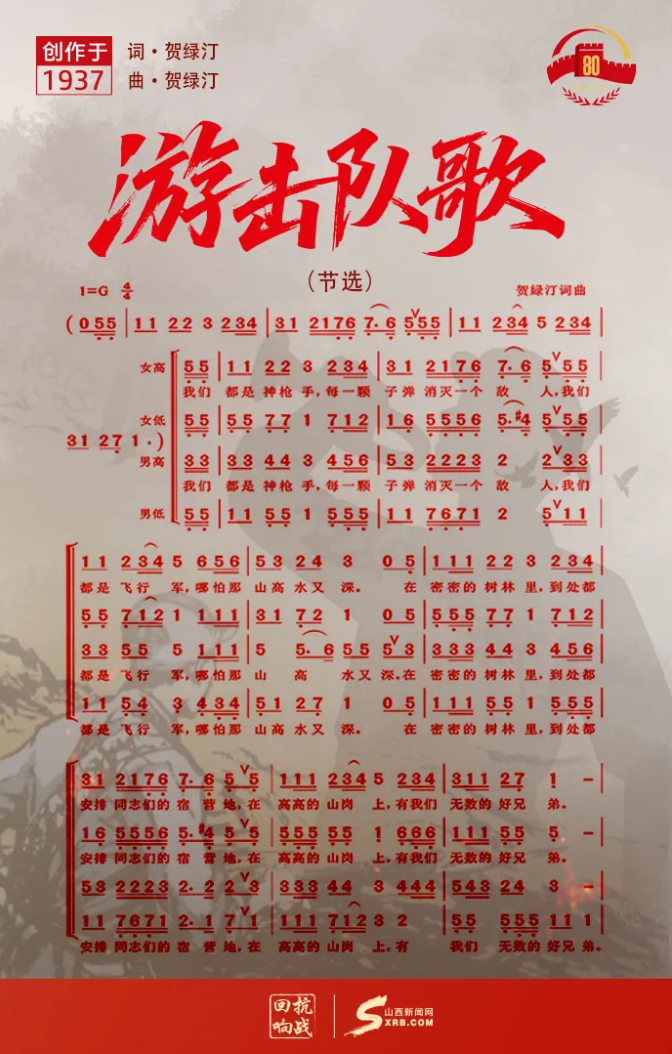 创作于 词·贺绿汀
1937 曲·贺绿汀
80
游击队歌
（节选）
1=G 4/4 贺绿汀词曲
( 0 5 5 | 1 1 2 2 3 2 3 4 | 3 1 2 1 7 6 7· 6 5 5 5 | 1 1 2 3 4 5 2 3 4 |
女高 5 5 | 1 1 2 2 3 2 3 4 | 3 1 2 1 7 6 7· 6 5 5 5 |
我们 都是 神枪 手，每一颗 子弹 消灭一个 敌 人，我们
女低 5 5 | 5 5 7 7 1 7 1 2 | 1 6 5 5 5 6 5· #4 5 5 5 |
3 1 2 7 1· )
男高 3 3 | 3 3 4 4 3 4 5 6 | 5 3 2 2 2 3 2 2 3 3 |
我们 都是 神枪 手，每一颗 子弹 消灭一个 敌 人，我们
男低 5 5 | 1 1 5 5 1 5 5 5 | 1 1 7 6 7 1 2 5 1 1 |
1 1 2 3 4 5 6 5 6 | 5 3 2 4 3 0 5 | 1 1 1 2 2 3 2 3 4 |
都是 飞行 军，哪怕那 山高 水又 深。 在 密密的 树林 里，到处都
5 5 7 1 2 1 1 1 1 | 3 1 7 2 1 0 5 | 5 5 5 7 7 1 7 1 2 |
3 3 5 5 5 1 1 1 | 5 5· 6 5 5 5 3 | 3 3 3 4 4 3 4 5 6 |
都是 飞行 军，哪怕那 山 高 水又 深。在 密密的 树林 里，到处都
1 1 5 4 3 4 3 4 | 5 1 2 7 1 0 5 | 1 1 1 5 5 1 5 5 5 |
都是 飞行 军，哪怕那 山高 水又 深。 在 密密的 树林 里，到处都
3 1 2 1 7 6 7· 6 5 5 | 1 1 1 2 3 4 5 2 3 4 | 3 1 1 2 7 1 – |
安排 同志们的 宿 营 地，在 高高的 山岗 上，有我们 无数的 好兄 弟。
1 6 5 5 5 6 5· #4 5 5 | 5 5 5 5 5 1 6 6 6 | 1 1 1 5 5 5 – |
安排 同志们的 宿 营 地，在 高高的 山岗 上，有我们 无数的 好兄 弟。
5 3 2 2 2 3 2· 2 2 3 | 3 3 3 4 4 3 4 4 4 | 5 4 3 2 4 3 – |
1 1 7 6 7 1 2· 1 7 1 | 1 1 1 7 1 2 3 2 | 5 5 5 5 5 1 1 1 |
安排 同志们的 宿 营 地，在 高高的 山岗 上，有 我们 无数的 好兄 弟。
抗战回响
山西新闻网
SXRB.COM